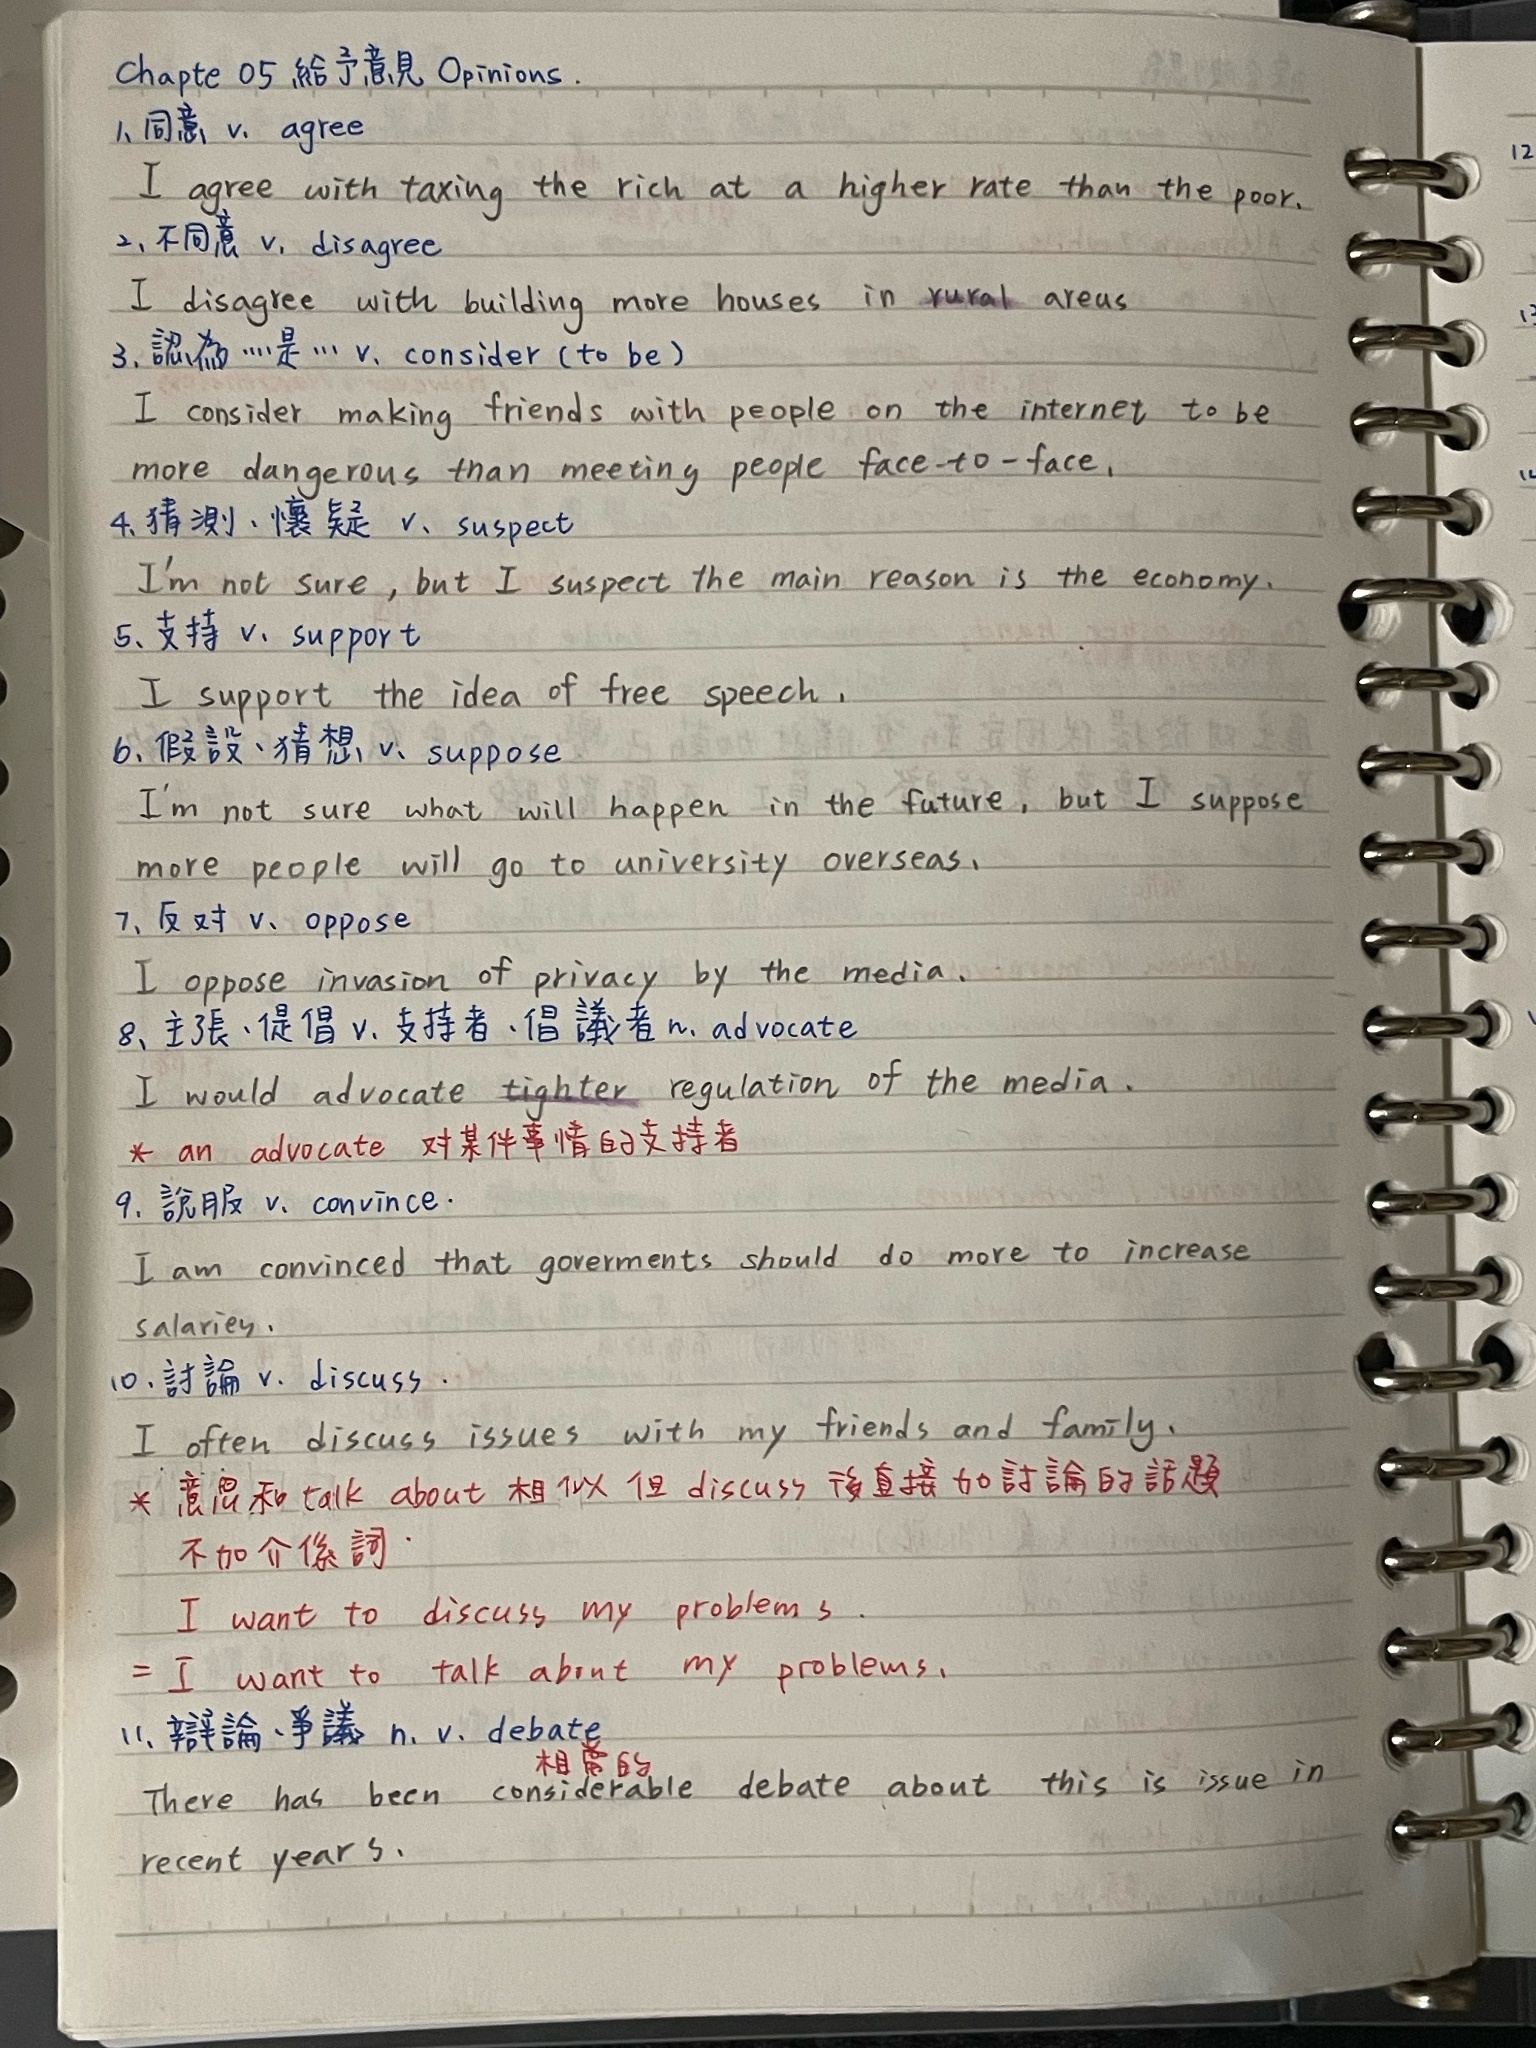 Chapte 05 給予意見 Opinions.
1、同意 v. agree
I agree with taxing the rich at a higher rate than the poor.
2、不同意 v. disagree
I disagree with building more houses in rural areas
3、認為……是… v. consider (to be)
I consider making friends with people on the internet to be
more dangerous than meeting people face-to-face.
4、猜測、懷疑 v. suspect
I'm not sure, but I suspect the main reason is the economy.
5、支持 v. support
I support the idea of free speech.
6、假設、猜想 v. suppose
I'm not sure what will happen in the future, but I suppose
more people will go to university overseas.
7、反対 v. oppose
I oppose invasion of privacy by the media.
8、主張、提倡 v. 支持者、倡議者 n. advocate
I would advocate tighter regulation of the media.
* an advocate 対某件事情的支持者
9、說服 v. convince.
I am convinced that goverments should do more to increase
salaries.
10、討論 v. discuss.
I often discuss issues with my friends and family.
* 意思和 talk about 相似 但 discuss 後直接加討論的話題
不加介係詞.
I want to discuss my problems.
= I want to talk about my problems.
11、辯論、爭議 n. v. debate
相當的
There has been considerable debate about this is issue in
recent years.
12
13
14